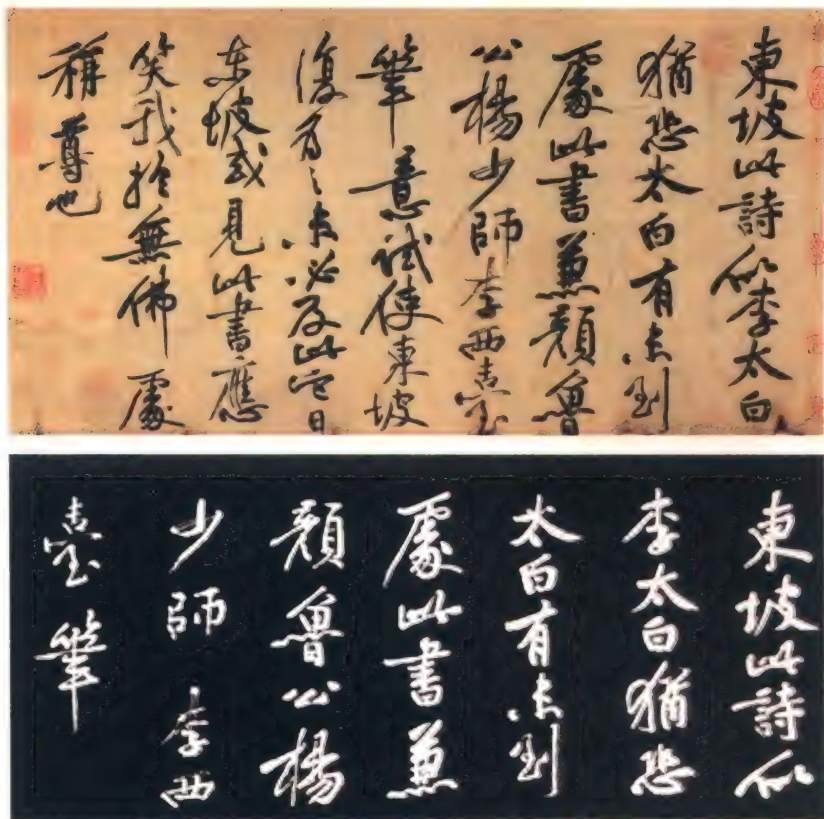 東坡此詩似李太白
猶恐太白有未到
處此書兼顏魯
公楊少師李西臺
筆意試使東坡
復為之未必及此它日
東坡或見此書應
笑我於無佛處
稱尊也
東坡此詩似
李太白猶恐
太白有未到
處此書兼
顏魯公楊
少師李西
臺筆